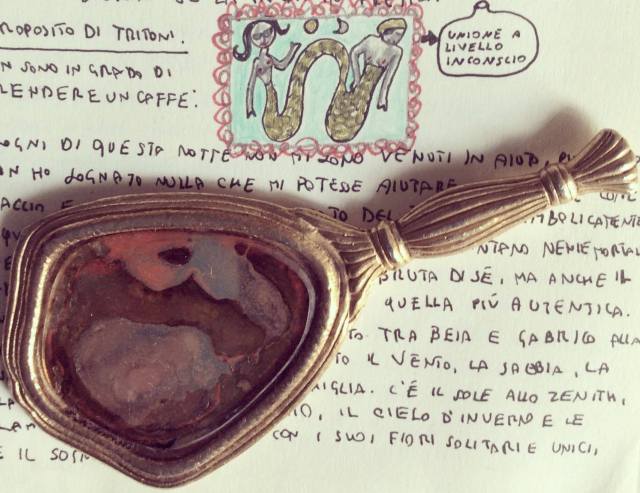 ROPOSITO DI TRITONI.
UNIONE A
LIVELLO
INCONSCIO
N SONO IN GRADO DI
LENDERE UN CAFFE'.
OGNI DI QUESTA NOTTE NON MI SONO VENUTI IN AIUTO,
ON HO SOGNATO NULLA CHE MI POTESSE AIUTARE
ACCIA E TO DEL COME
MBOLICAMENTE
NTANO NEMIE MORTAL
BRUTA DI SÉ, MA ANCHE IL
QUELLA PIÙ AUTENTICA.
TO TRA BEIA E GABRIGO ALLA
TO IL VENTO, LA SABBIA, LA
IGLIA. C'È IL SOLE ALLO ZENITH,
IO, IL CIELO D'INVERNO E LE
CON I SUOI FIORI SOLITARI E UNICI,
E IL SOGN